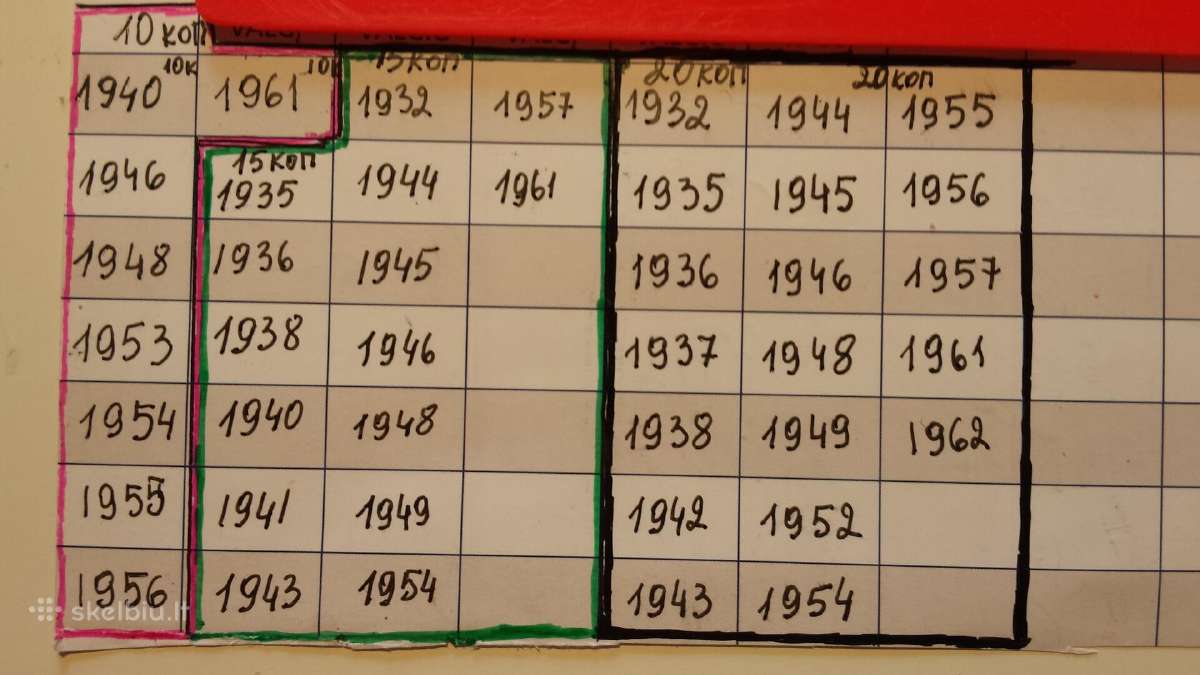 10 коп
10к 10к 15коп 20коп 20коп
1940 1961 1932 1957 1932 1944 1955
15коп
1946 1935 1944 1961 1935 1945 1956
1948 1936 1945 1936 1946 1957
1953 1938 1946 1937 1948 1961
1954 1940 1948 1938 1949 1962
1955 1941 1949 1942 1952
1956 1943 1954 1943 1954
skelbiu.lt